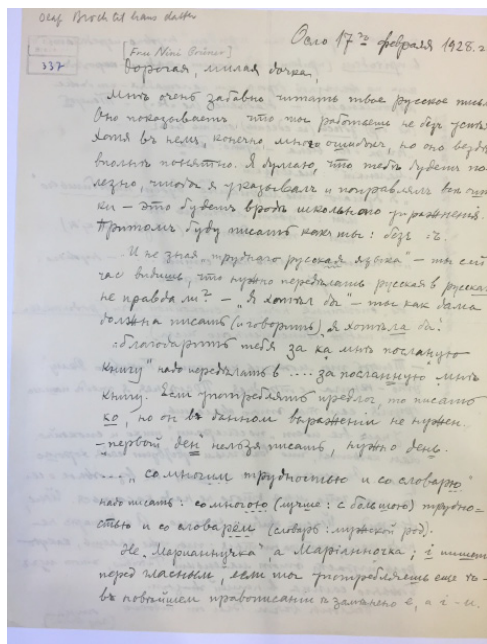 Olaf Broch til hans datter
Осло 17го февраля 1928.г
[Frau Nini Prüner]
337
Дорогая, милая дочка,
Мнѣ очень забавно читать твое русское
Оно показываетъ что ты работаешь не безъ
Хотя въ немъ, конечно, много ошибокъ, но оно
вполнѣ понятно. Я думаю, что тебѣ будетъ по-
лезно, чтобы я указывалъ и поправлялъ все
ки – это будетъ вродѣ школьного упражненія.
Притомъ буду писать какъ ты: безъ ъ.
„И не зная „трудного русская языка" – ты сей
час видишь, что нужно передѣлать русская в
не правда ли? – „Я хотѣл бы" – ты как дама
должна писать (и говорить) я хотѣла бы.
„благодарить тебя за ка мнѣ посланую
книгу" надо передѣлать в ... за посланную мнѣ
книгу. Если употреблять предлог, то писать
ко, но он въ данном выражении не нужен.
– „первой ден" нельзя писать, нужно день.
– ... „со многим трудностью и со словарю"
надо писать: со многою (лучше: с большою) трудно-
стью и со словарём (словарь: мужской род).
Не „Марианнучка", а Маріанночка; і пишет
перед гласным, если ты употребляешь еще
въ новѣйшем правописании замѣнено е, а і – и.